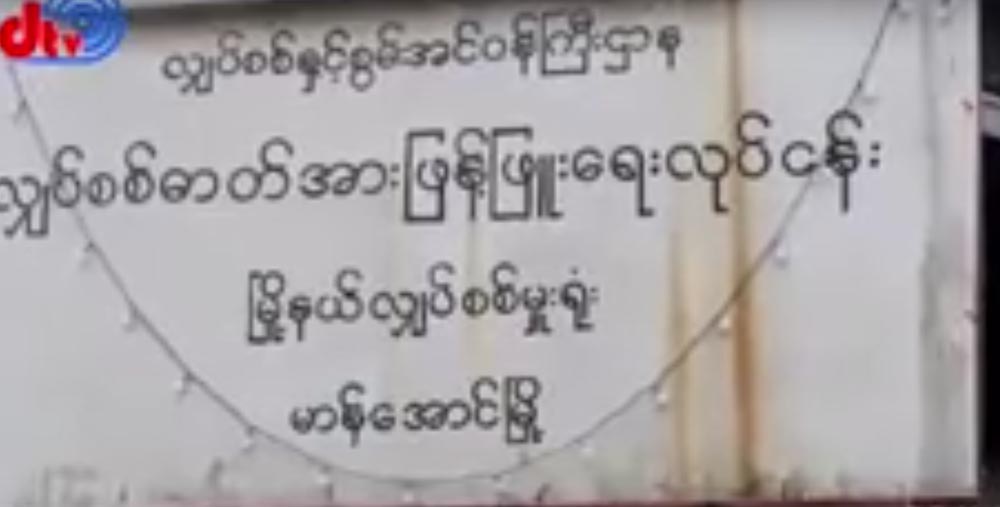 dtv
လျှပ်စစ်နှင့်စွမ်းအင်ဝန်ကြီးဌာန
လျှပ်စစ်ဓာတ်အားဖြန့်ဖြူးရေးလုပ်ငန်း
မြို့နယ်လျှပ်စစ်မှူးရုံး
မာန်အောင်မြို့